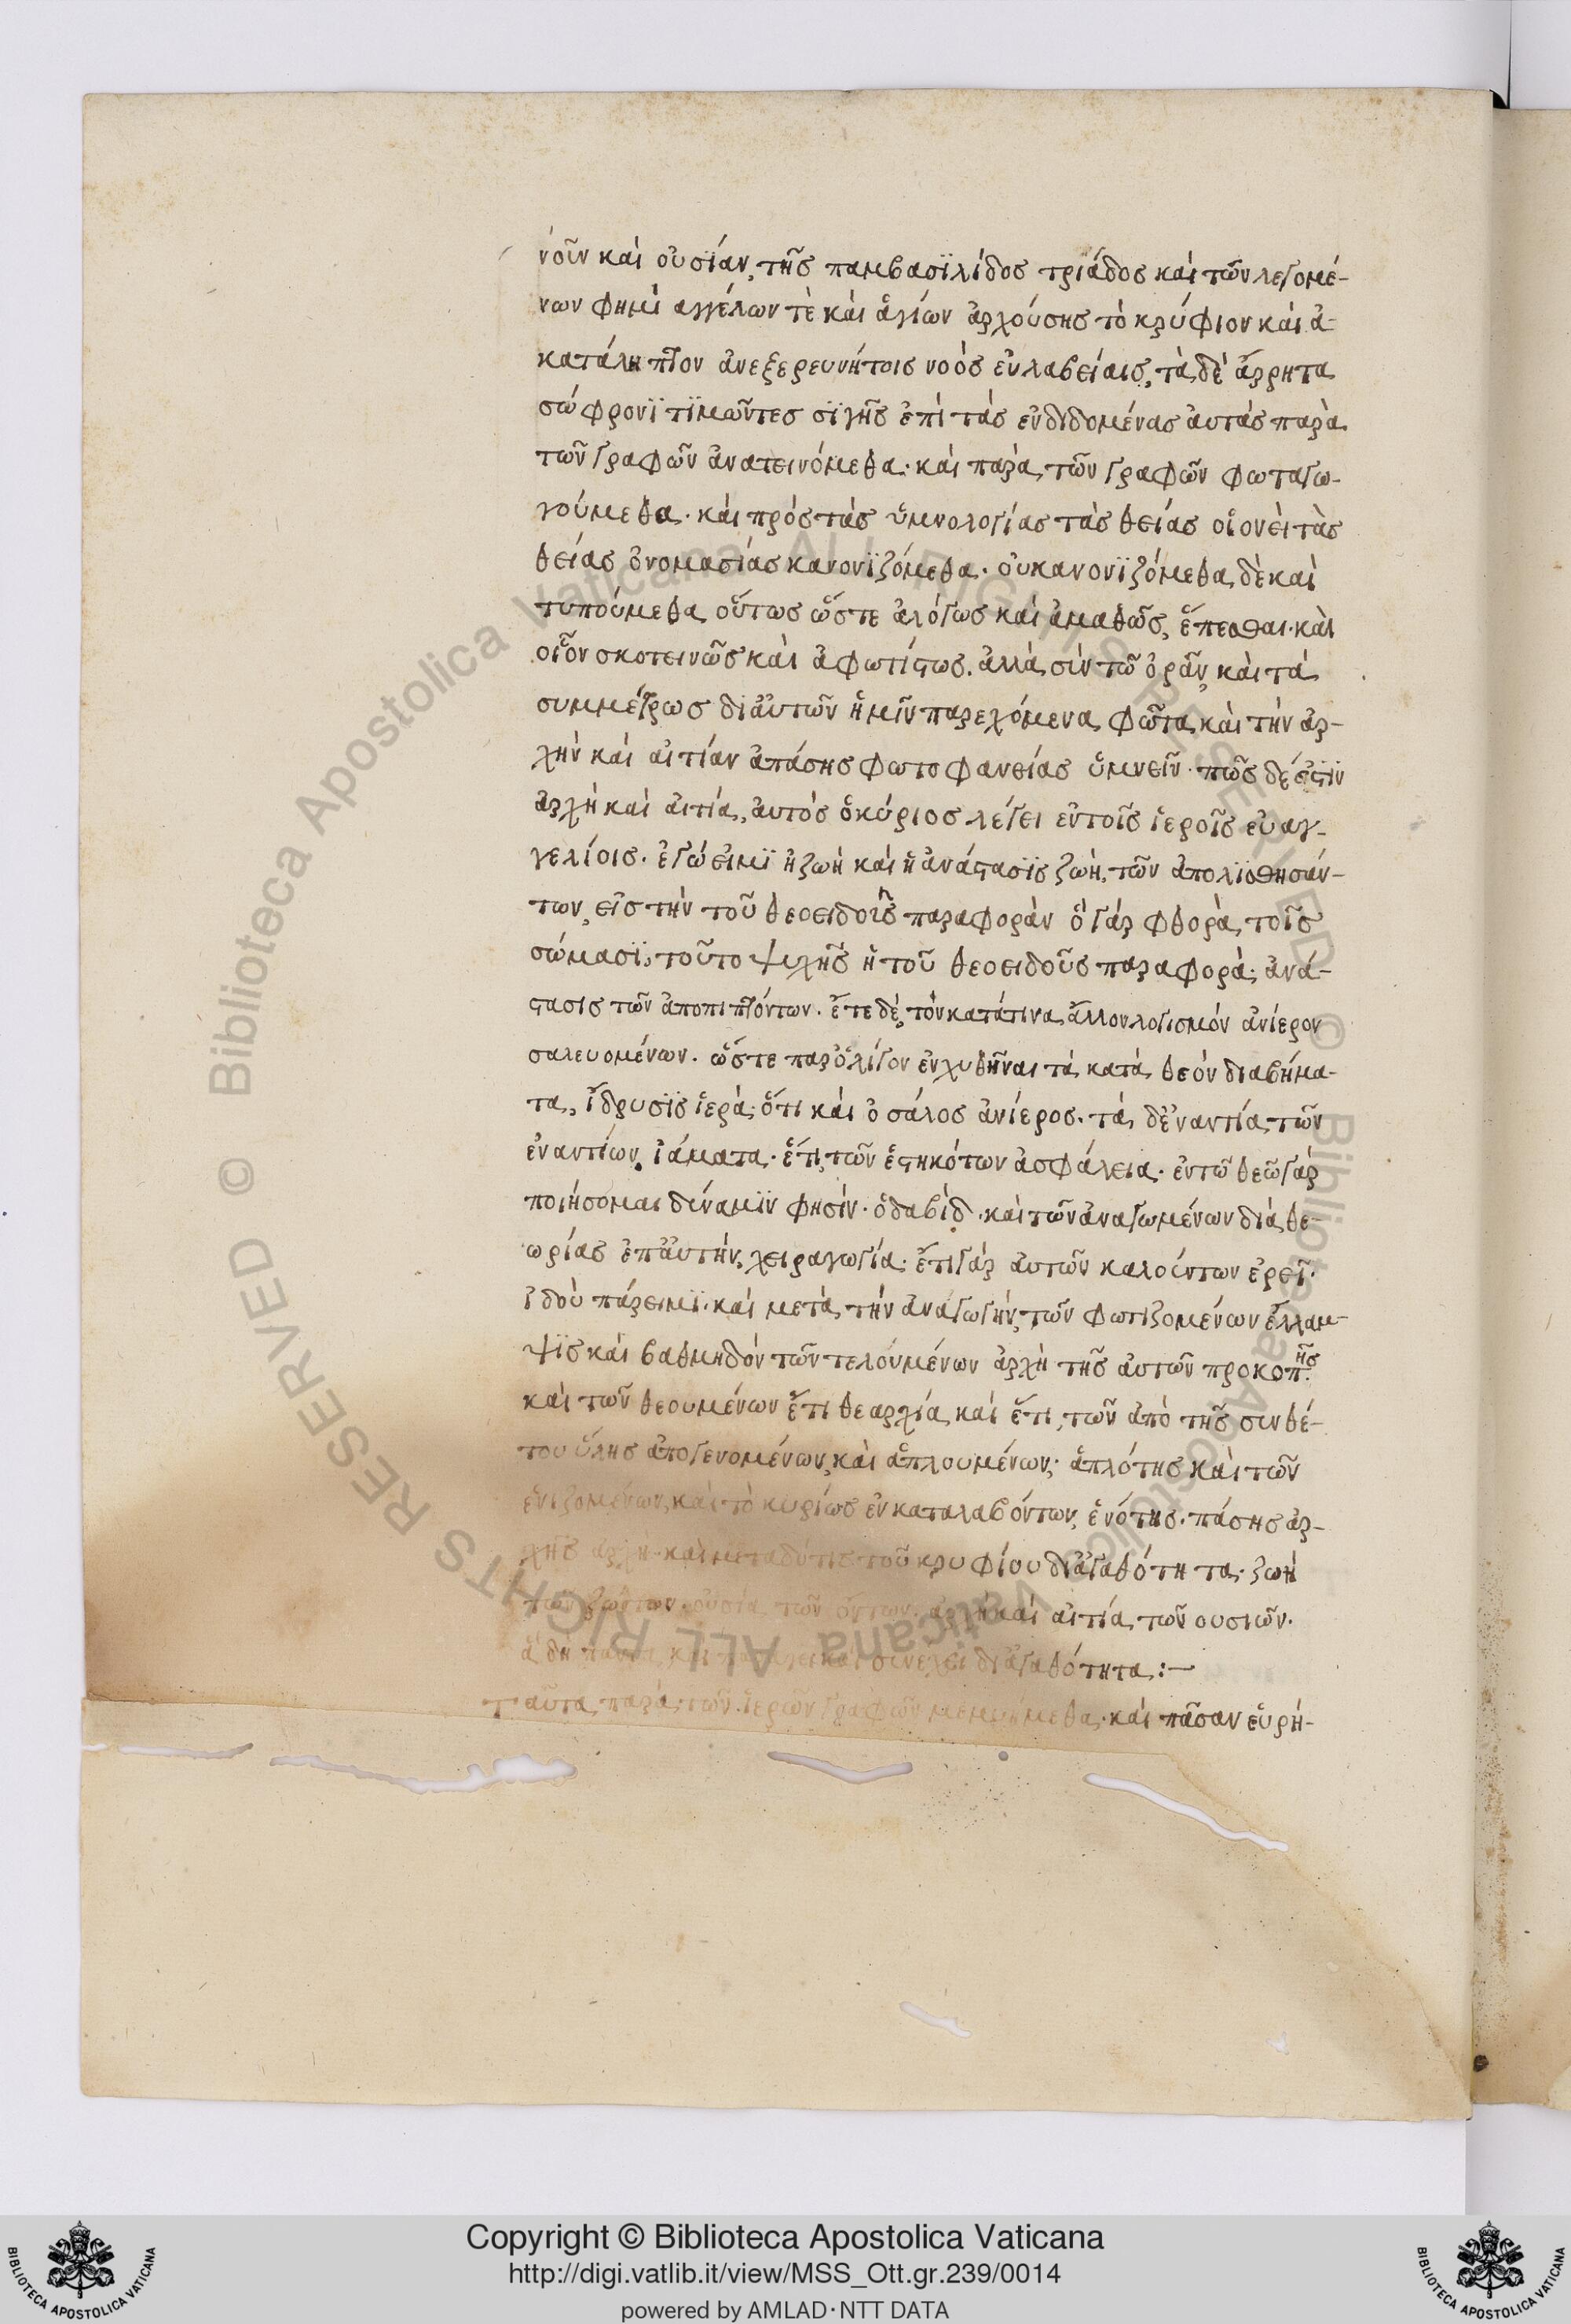 νοῦν καὶ οὐσίαν, τῆς παμβασϊλίδος τριάδος καὶ τῶν λεγομέ-
νων φημὶ αγγέλων τὲ καὶ ἁγίων ἀρχούσης τὸ κρύφιον καὶ ἀ-
κατάληπτον ἀνεξερευνήτοις νοὸς εὐλαβείαις, τὰ δὲ ἄρρητα
σώφρονϊ τϊμῶντες σϊγῆς ἐπὶ τὰς ἐνδιδομένας ἀυτὰς παρὰ
τῶν γραφῶν ἀνατεινόμεθα· καὶ παρὰ τῶν γραφῶν φωταγω-
γούμεθα· καὶ πρὸς τὰς ὑμνολογίας τὰς θείας οἱονεὶ τὰς
θείας ὀνομασίας κανονϊζόμεθα· οὐκανονϊζόμεθα δὲ καὶ
τυπούμεθα οὕτως ὥστε ἀλόγως καὶ ἀμαθῶς, ἕπεσθαι· καὶ
οἷον σκοτεινῶς καὶ ἀφωτίστως. ἀλλὰ σὺν τῶ ὁρᾶν, καὶ τὰ
συμμέτρως δι ἀυτῶν ἡμῖν παρεχόμενα φῶτα καὶ τὴν ἀρ-
χὴν καὶ αἰτίαν ἁπάσης φωτοφανείας ὑμνεῖν· πῶς δέ ἐστϊν
ἀρχὴ καὶ ἀιτία, ἀυτὸς ὁ κύριος λέγει ἐν τοῖς ἱεροῖς εὐαγ-
γελίοις· ἐγώ εἰμϊ ἡ ζωὴ καὶ ἡ ἀνάστασϊς ζωὴ, τῶν ἀπολϊσθησάν-
των, εἰς τὴν τοῦ θεοειδοῦς παραφορὰν ὃ γὰρ φθορὰ τοῖς
σώμασϊ, τοῦτο ψυχῆς ἡ τοῦ θεοειδοῦς παραφορὰ· ἀνά-
στασις τῶν ἀποπιπτόντων. ἔτε δὲ, τὸν κατάτινα ἄλλον λογισμὸν ἀνίερον
σαλευομένων. ὥστε παρ ὀλίγον ἐνχυθῆναι τὰ κατὰ θεὸν διαβήμα-
τα, ἵδρυσϊς ἱερὰ· ὅτι καὶ ὁ σάλος ἀνίερος. τὰ δ ἐναντία τῶν
ἐναντίων ἰάματα· ἔτι, τῶν ἑστηκότων ἀσφάλεια· ἐν τῶ θεῶ γὰρ
ποιήσομαι δύναμϊν φησὶν· ὁ δαβὶδ· καὶ τῶν ἀναγωμένων διὰ θε-
ωρίας ἐπ ἀυτὴν, χειραγωγία· ἔτι γὰρ αυτῶν καλούντων ἐρεῖ·
ἰδοὺ πάρειμϊ· καὶ μετὰ τὴν ἀναγωγὴν, τῶν φωτιζομένων ἔλλαμ-
ψϊς καὶ βαθμηδὸν τῶν τελουμένων ἀρχὴ τῆς ἀυτῶν προκοπῆς
καὶ τῶν θεουμένων ἔτι θεαρχία, καὶ ἔτι, τῶν ἀπὸ τῆς συνθέ-
του ὕλης ἀπογενομένων, καὶ ἁπλουμένων· ἁπλότης καὶ τῶν
ἑνιζομένων, καὶ τὸ κυρίως ἐν καταλαβόντων, ἑνότης. πάσης ἀρ-
χῆς ἀρχὴ· καὶ μεταδότις τοῦ κρυφίου δι ἀγαθότητα· ζωὴ
τῶν ζώντων· οὐσία τῶν ὄντων. ἀρχὴ καὶ αἰτία τῶν ουσιῶν.
ἃ δὴ πάντα καὶ παράγει καὶ συνέχει δι ἀγαθότητα :—
ταῦτα παρὰ τῶν ἱερῶν γραφῶν μεμυήμεθα· καὶ πᾶσαν εὑρή-
© Biblioteca Apostolica Vaticana ALL RIGHTS RESERVED © Biblioteca Apostolica Vaticana ALL RIGHTS RESERVED
BIBLIOTECA APOSTOLICA VATICANA
Copyright © Biblioteca Apostolica Vaticana
http://digi.vatlib.it/view/MSS_Ott.gr.239/0014
powered by AMLAD·NTT DATA
BIBLIOTECA APOSTOLICA VATICANA